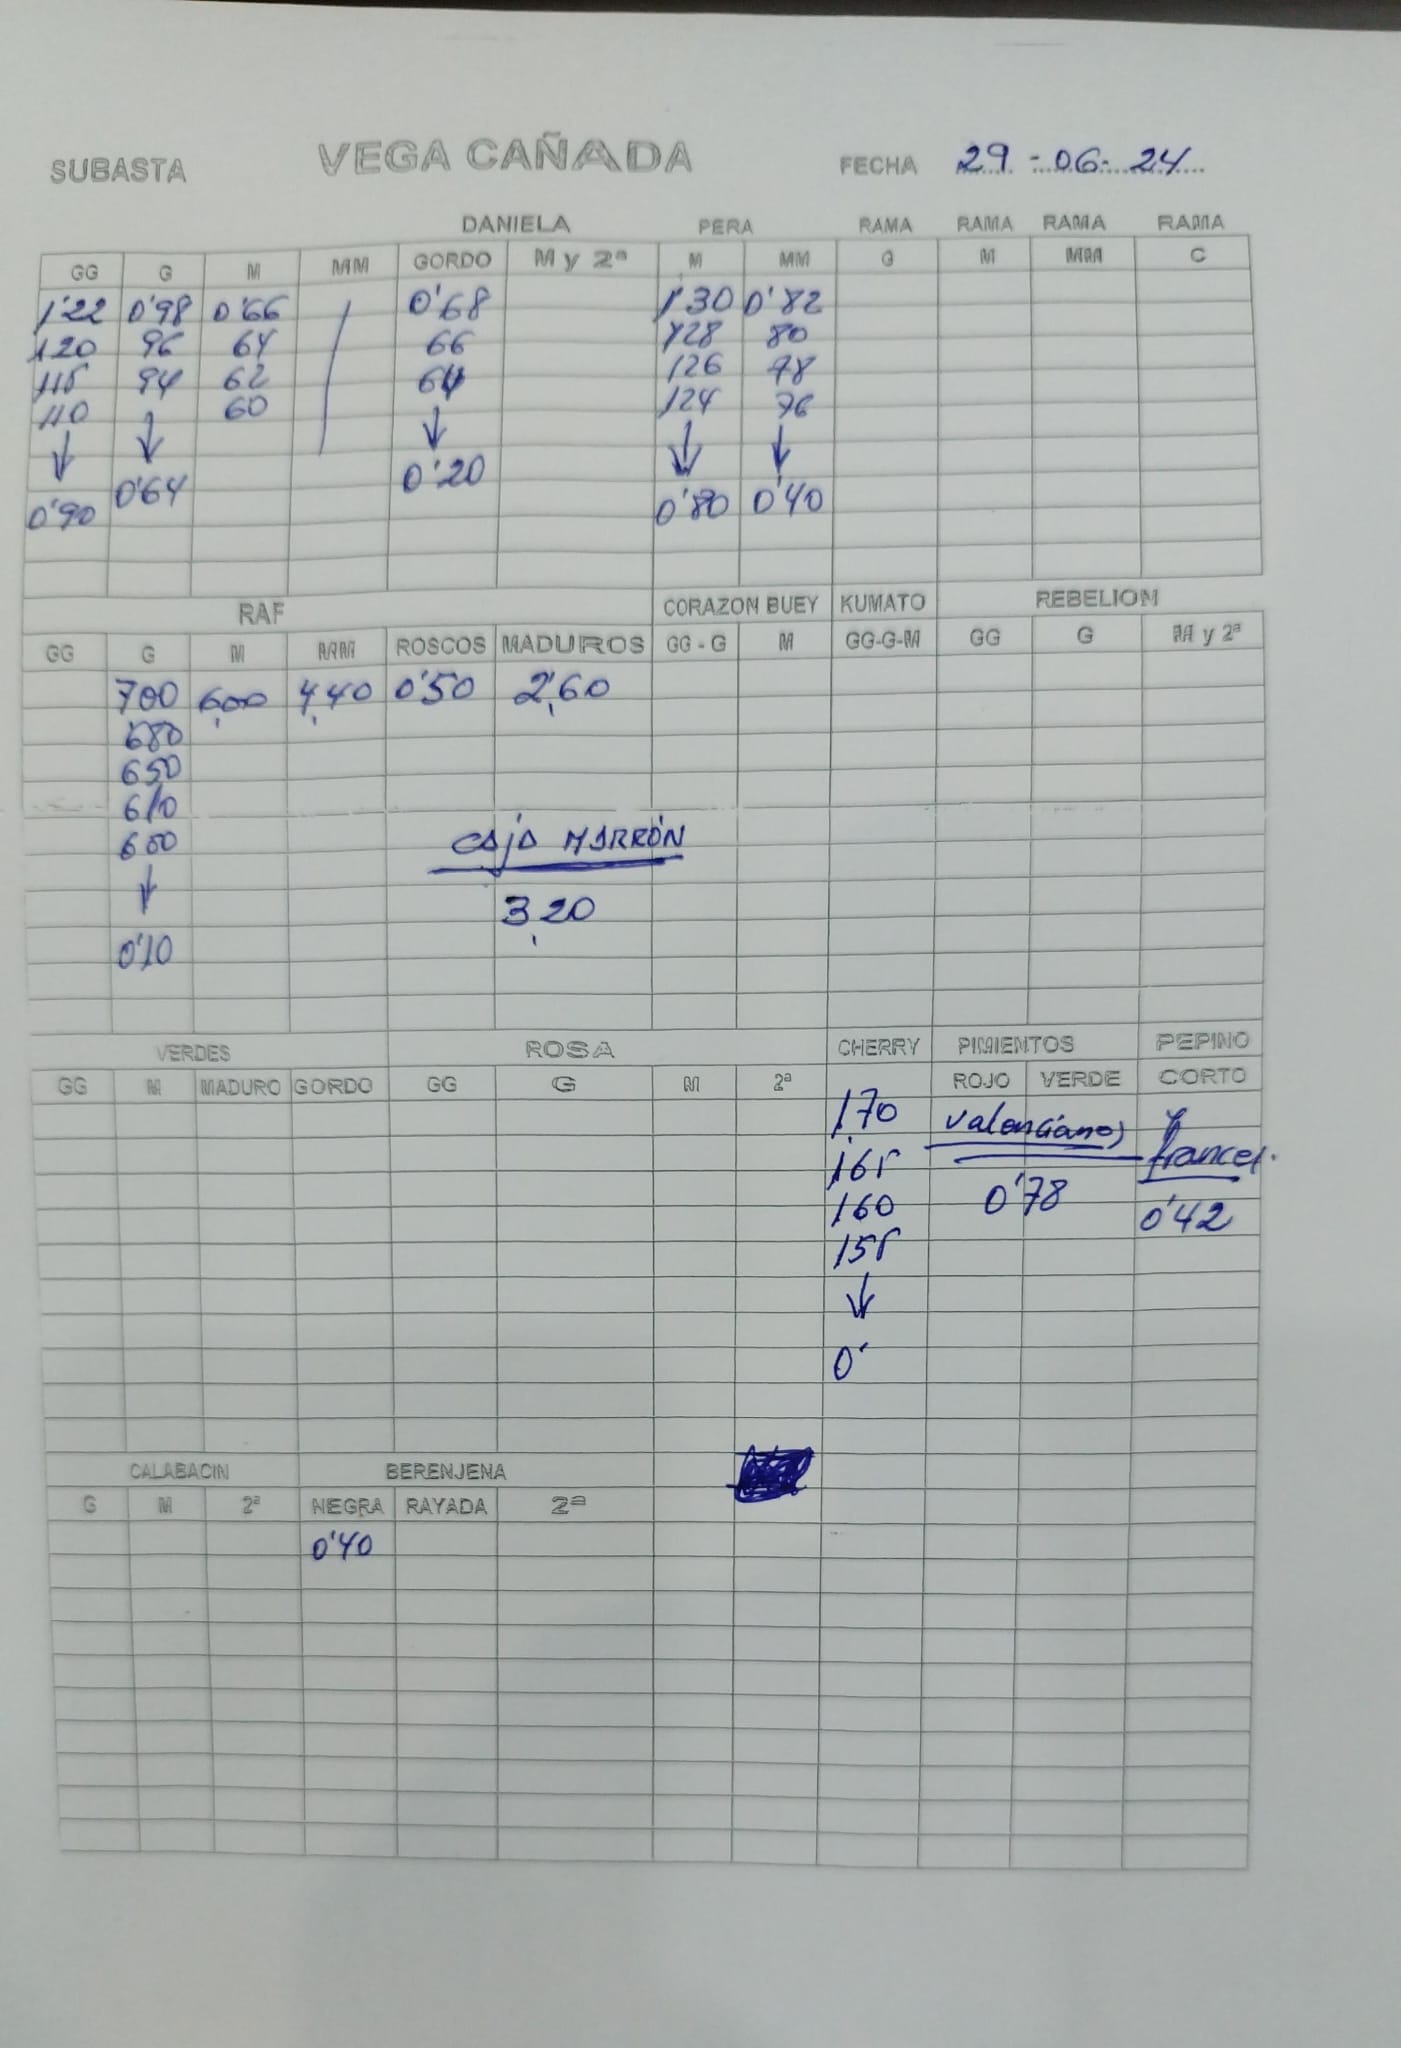 SUBASTA VEGA CAÑADA FECHA 29-06-24
DANIELA PERA RAMA RAMA RAMA RAMA
GG G M MM GORDO M y 2ª M MM G M MM C
1'22 0'98 0'66 0'68 1'30 0'82
120 96 64 66 128 80
115 94 62 64 126 78
110 ↓ 60 ↓ 124 76
↓ 0'64 0'20 ↓ ↓
0'90 0'80 0'40
RAF CORAZON BUEY KUMATO REBELION
GG G M MM ROSCOS MADUROS GG - G M GG-G-M GG G M y 2ª
700 6,00 4,40 0'50 2,60
680
650
610
600 CAJA MARRÓN
↓ 3,20
0'10
VERDES ROSA CHERRY PIMIENTOS PEPINO
GG M MADURO GORDO GG G M 2ª ROJO VERDE CORTO
1,70 Valencianos y
165 frances.
160 0'78 0'42
155
↓
0'
CALABACIN BERENJENA
G M 2ª NEGRA RAYADA 2ª
0'40